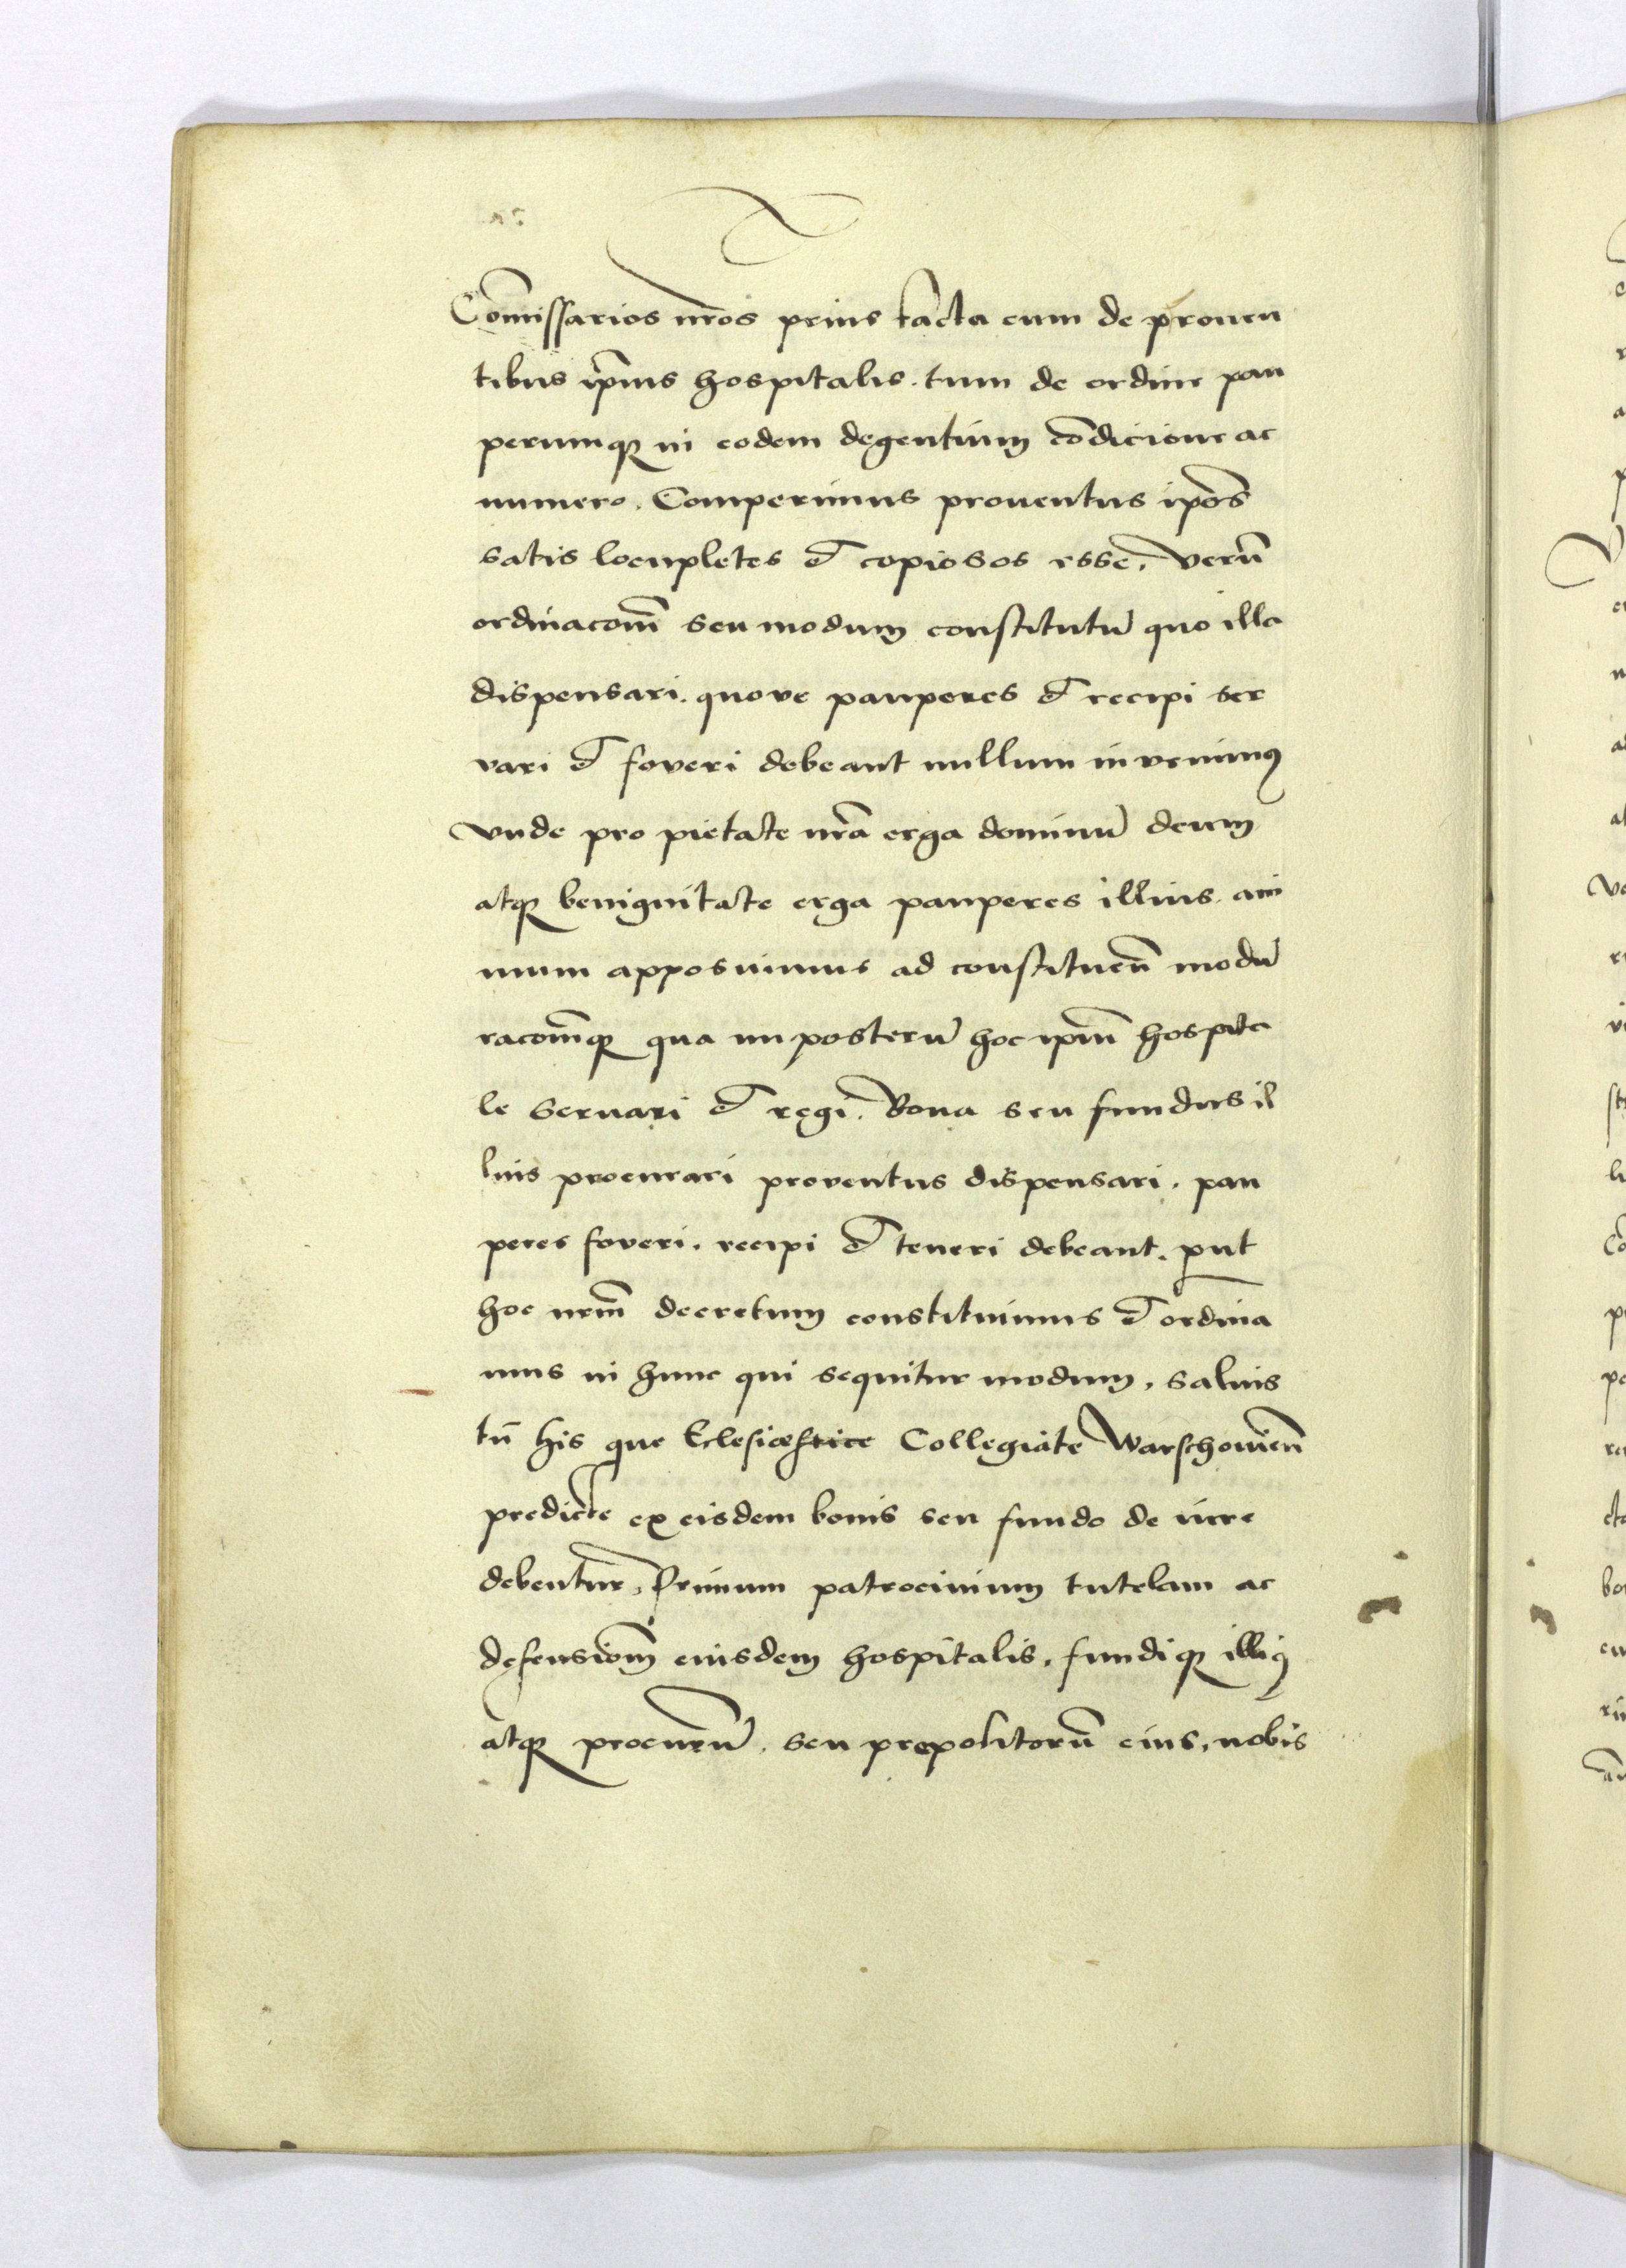 Com̄issarios nr̄os prius facta cum de prouen
tibus ip̄ius hospitalis. tum de ordine pau
perumq₃ in eodem degentium cōdicione ac
numero. Comperimus prouentus ip̄os
satis locupletes et copiosos esse. verū
ordinacōm̄ seu modum constitutū quo illa
dispensari. quove pauperes et recipi ser
vari et foveri debeant nullum invenimꝰ
Vnde pro pietate nr̄a erga dominū deum
atq₃ benignitate erga pauperes illius. ani
mum apposuimus ad constituen̄ modū
racōm̄q₃ qua in posterū hoc ip̄m̄ hospita
le seruari et regi. Bona seu fundus il
lius procurari proventus dispensari. pau
peres foveri. recipi et teneri debeant. put
hoc nr̄m̄ decretum constituimus et ordina
mus in hunc qui sequitur modum, saluis
tn̄ his que Eclesiæstice Collegiate Warschouien̄
predicte ex eisdem bonis seu fundo de iure
debentur, Primum patrocinium tutelam ac
defensiōm̄ eiusdem hospitalis, fundiq₃ illiꝰ
atq₃ procurū, seu prepositorū eius, nobis